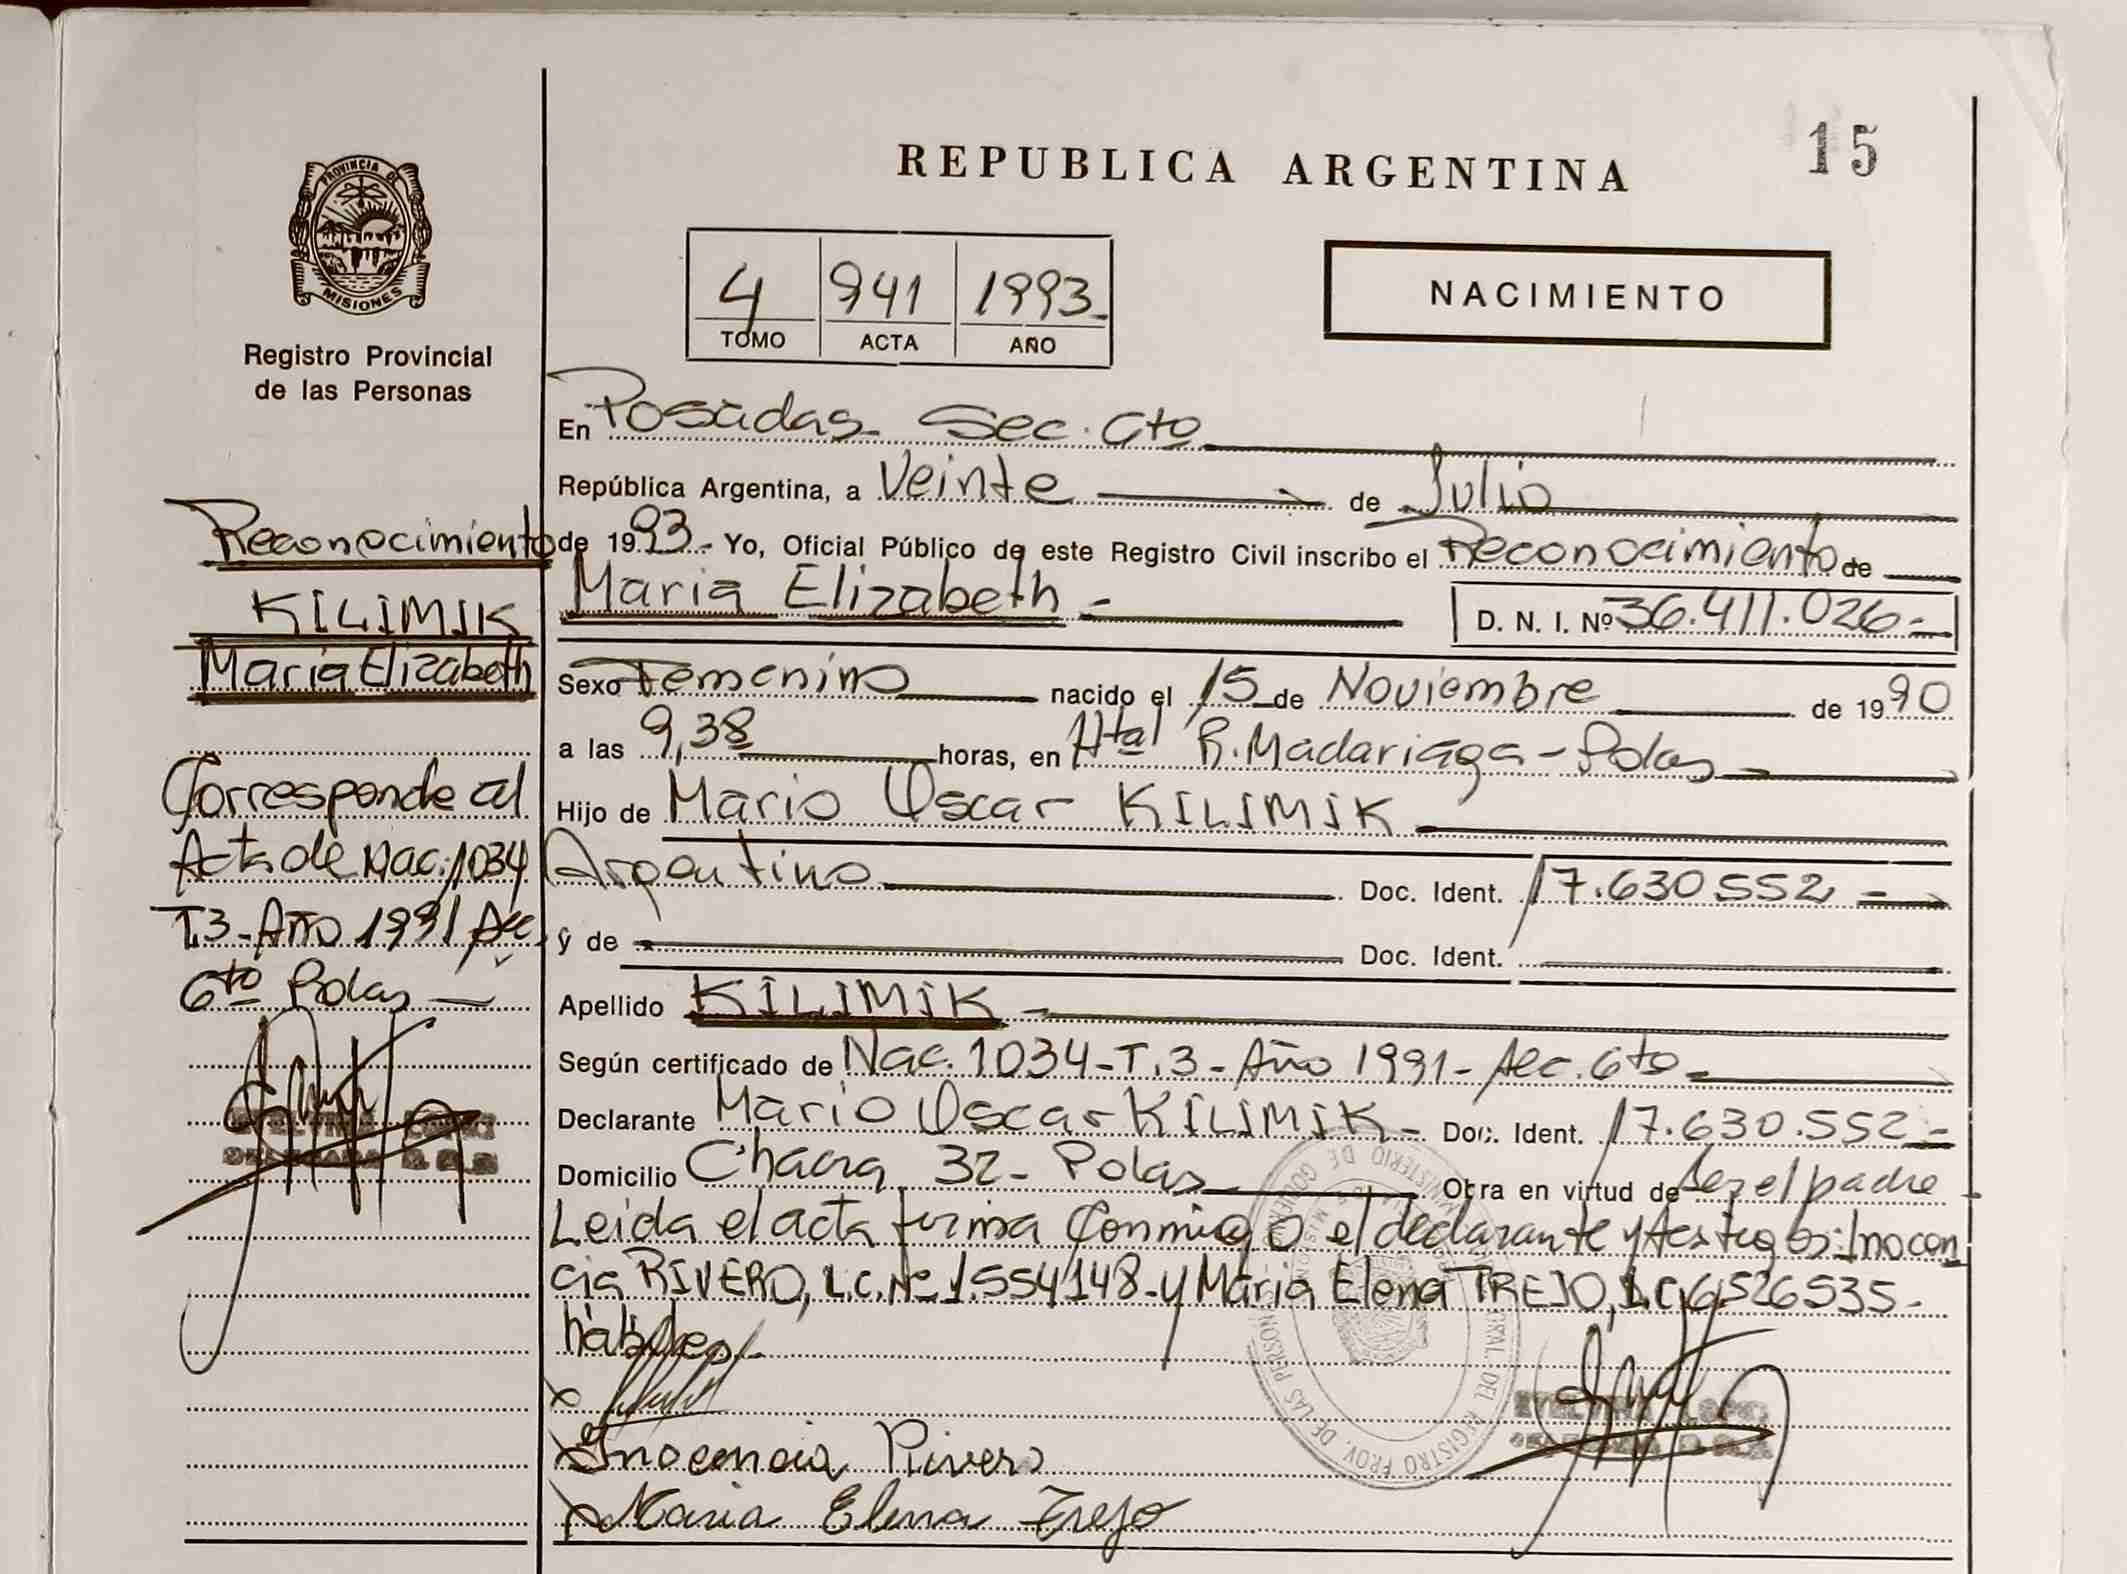 15
REPUBLICA ARGENTINA
PROVINCIA DE
MISIONES
4 941 1993
TOMO ACTA AÑO
NACIMIENTO
Registro Provincial
de las Personas
Reconocimiento
KILIMIK
Maria Elizabeth
Corresponde al
Acta de Nac. 1034
T.3- Año 1991 Sec
6to Pdas
En Posadas Sec. 6to
República Argentina, a Veinte de Julio
de 1993.- Yo, Oficial Público de este Registro Civil inscribo el Reconocimiento de
Maria Elizabeth - D. N. I. Nº 36.411.026-
Sexo Femenino nacido el 15 de Noviembre de 1990
a las 9,38 horas, en Htal R. Madariaga - Pdas
Hijo de Mario Oscar KILIMIK
Argentino Doc. Ident. 17.630552
y de Doc. Ident.
Apellido KILIMIK
Según certificado de Nac. 1034-T.3-Año 1991-Sec. 6to
Declarante Mario Oscar KILIMIK- Doc. Ident. 17.630.552-
Domicilio Chacra 32- Pdas Obra en virtud de ser el padre
Leida el acta firma Conmigo el declarante y testigos: Inocen
cia RIVERO, L.C. Nº 1.554148-y Maria Elena TREJO, L.C. 6.526535-
habiles.
Inocencia Rivero
Maria Elena Trejo
MINISTERIO DE
REGISTRO PROV. DE LAS PERSON